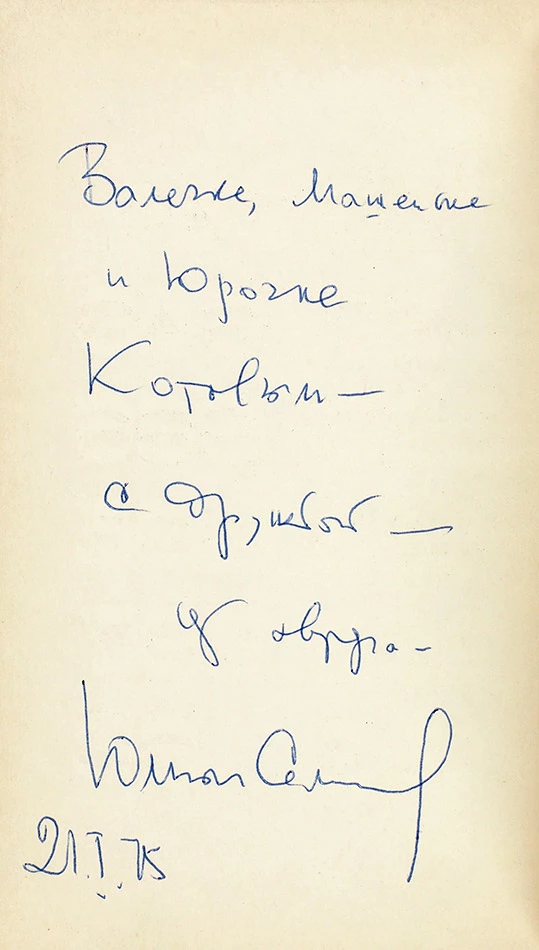 Валечке, Машеньке
и Юрочке
Котовым —
с дружбой —
автора —
Юлиан Семенов
21.I.75